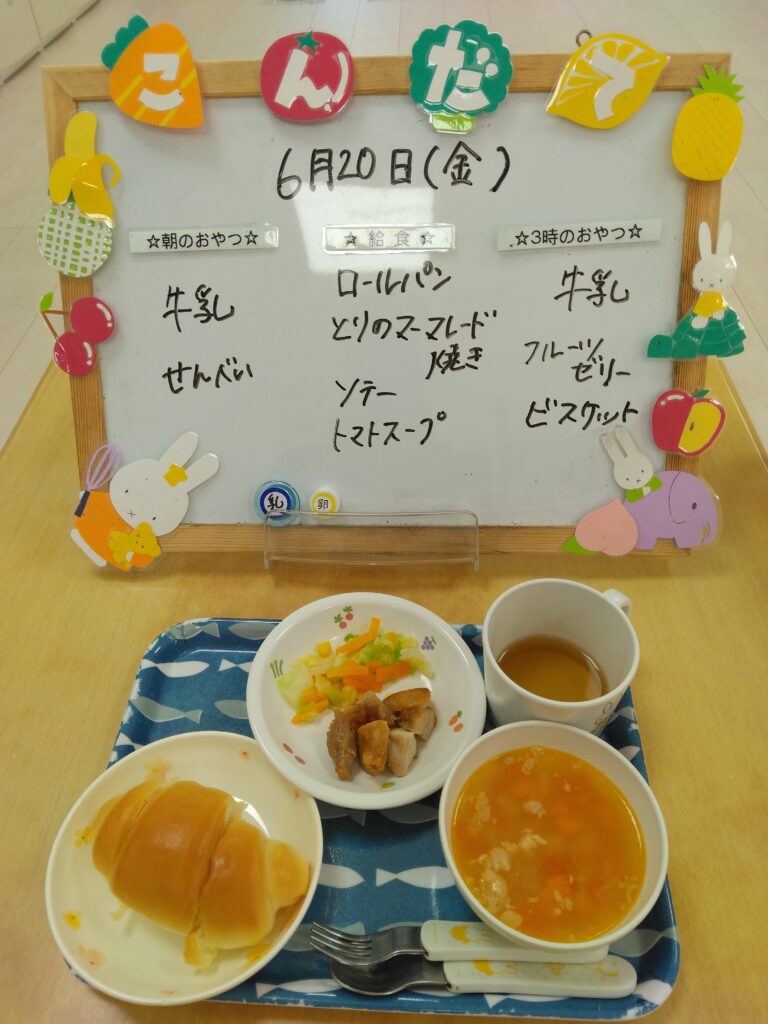 こんだて
6月20日(金)
☆朝のおやつ☆
牛乳
せんべい
☆給食☆
ロールパン
とりのマーマレード
焼き
ソテー
トマトスープ
☆3時のおやつ☆
牛乳
フルーツ
ゼリー
ビスケット
乳
卵